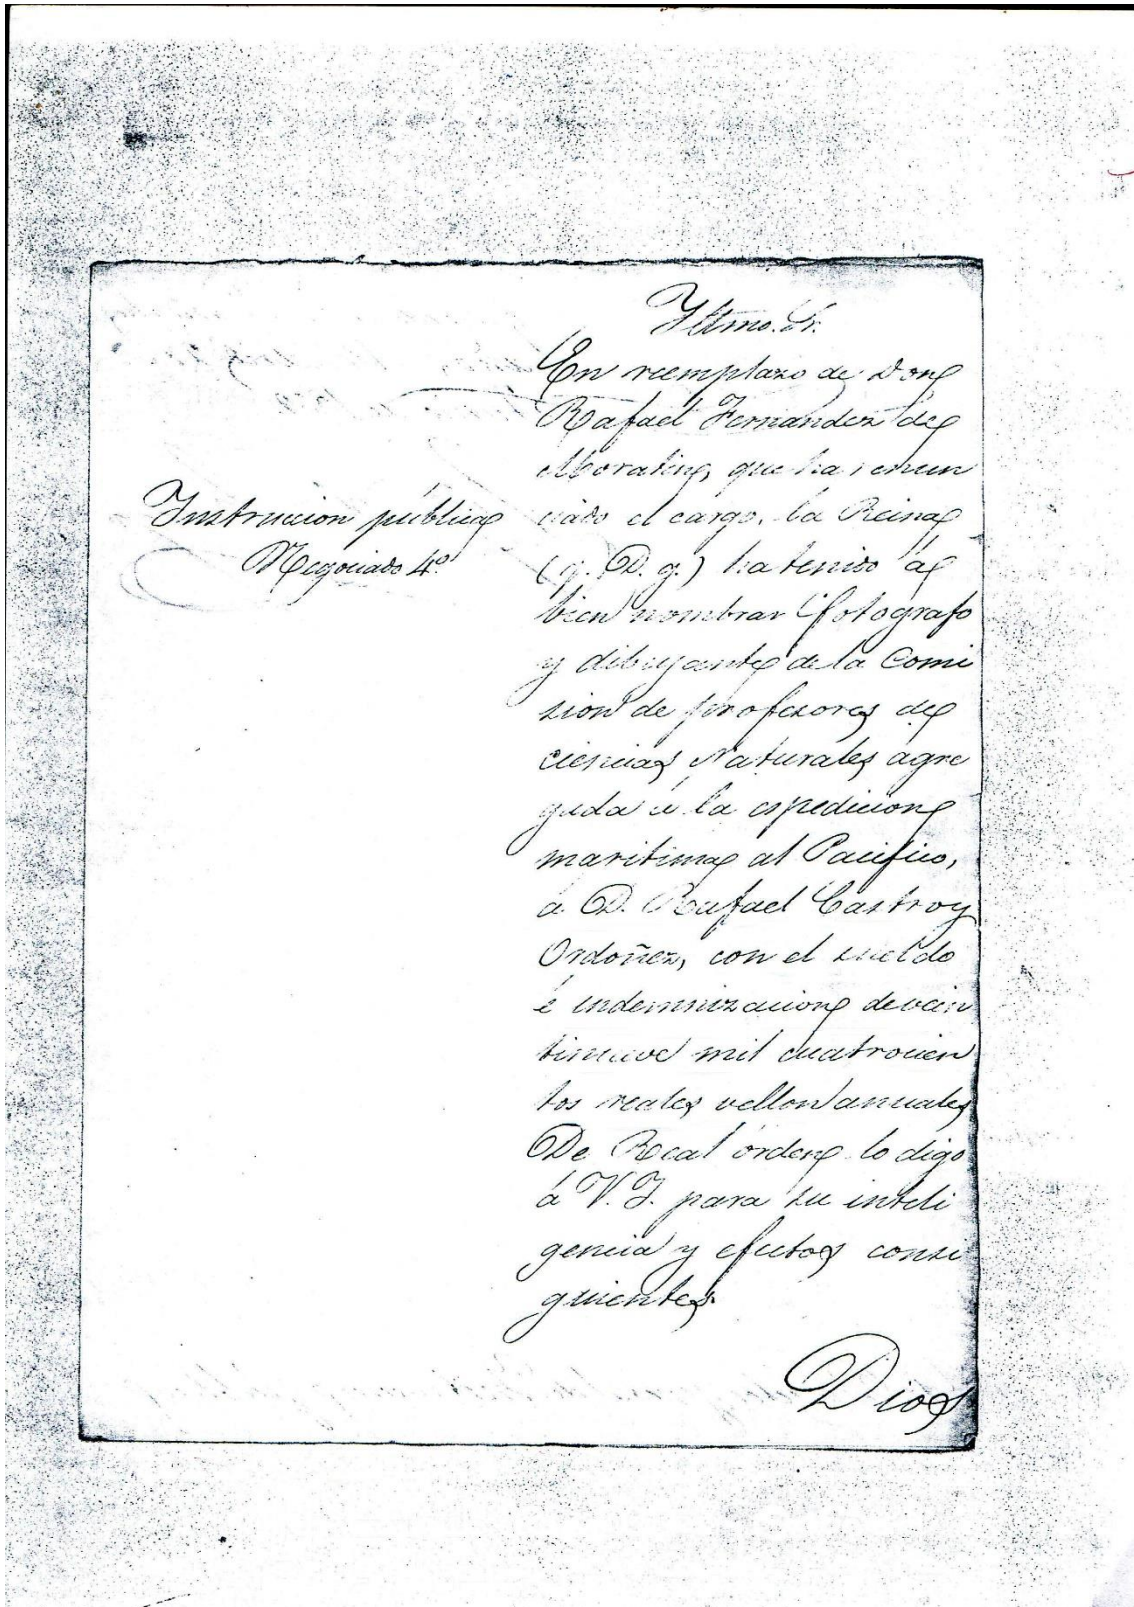 Yltmo. Sr.
En reemplazo de Don
Rafael Fernandez de
Moratin, que ha renun
ciado el cargo, la Reina
(q. D. g.) ha tenido á
bien nombrar fotografo
y dibujante de la Comi
sion de profesores de
ciencias Naturales agre
gada á la espedicion
maritima al Pacifico,
á D. Rafael Castro y
Ordoñez, con el sueldo
é indemnizacion de vein
tinueve mil cuatrocien
tos reales vellon anuales
De Real órden lo digo
á V. I. para su inteli
gencia y efectos consi
guientes.
Dios
Instruccion pública
Negociado 4º